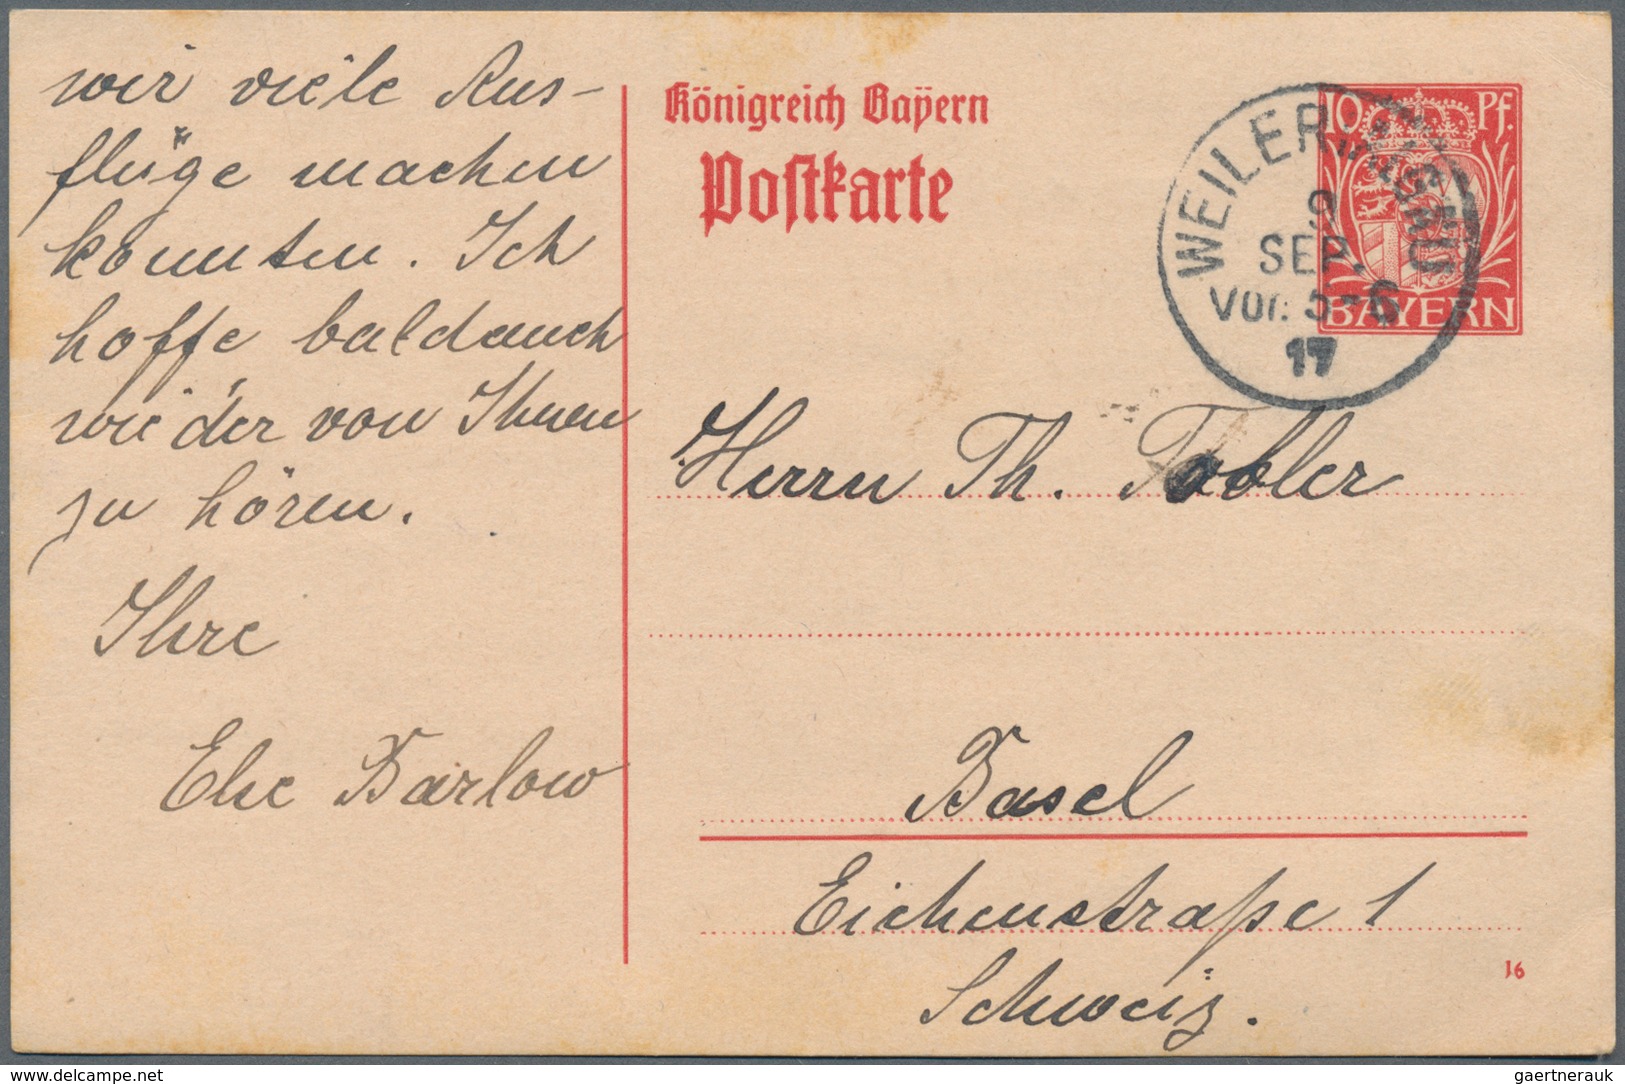 wir viele Aus-
flüge machen
konnten. Ich
hoffe bald auch
wieder von Ihnen
zu hören.
Ihre
Else Barlow
Königreich Bayern
Postkarte
10 Pf.
BAYERN
WEILER i. ALLGÄU
9
SEP.
Vor. 5-6
17
Herrn Th. Tobler
Basel
Eichenstraße 1
Schweiz.
16
www.delcampe.net
gaertnerauk